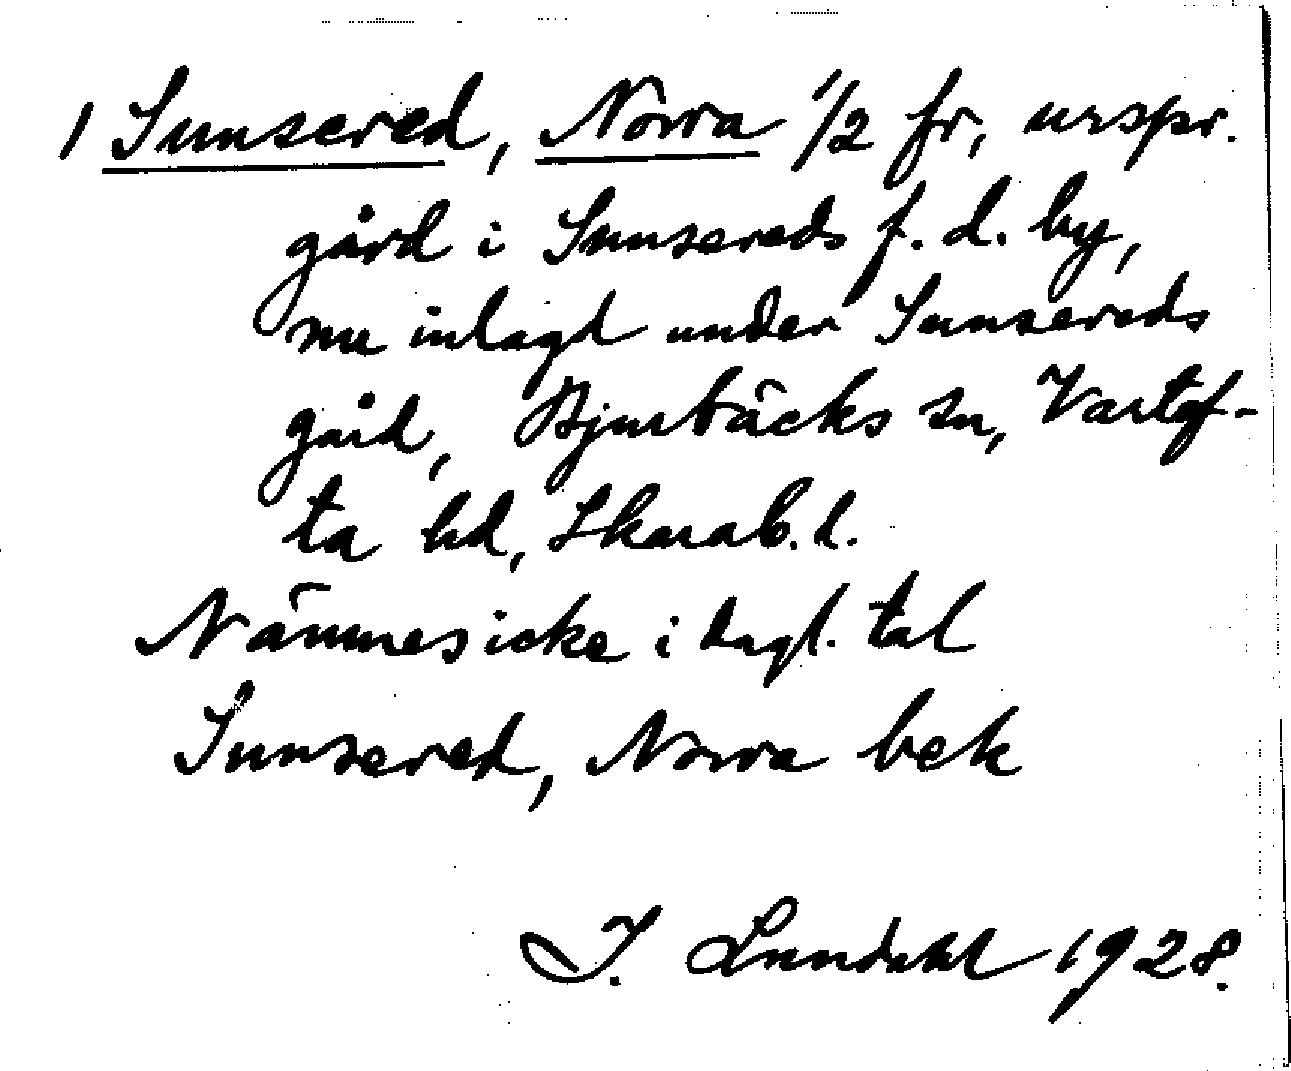 1 Sunsered, Norra 1/2 fr, urspr.
gård i Sunsereds f. d. by,
nu inlagd under Sunsereds
gård, Bjurbäcks sn, Vartof-
ta hd, Skarab. l.
Nämnes icke i dagl. tal
Sunsered, Norra bek
I. Lundahl 1928.